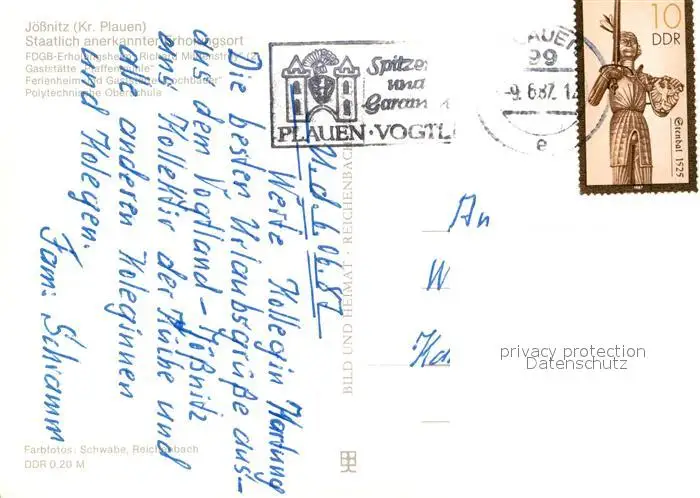 Jößnitz (Kr. Plauen)
Staatlich anerkannter Erholungsort
FDGB-Erholungsheim "Richard
Gaststätte "Pfaffenmühle"
Ferienheim und Gaststätte
Polytechnische Oberschule
Spitze
und
PLAUEN · VOGTL
PLAUEN
99
-9.6.87. 12
e
10
DDR
Stendal 1525
1987
d. 6.06.87
Werte Kollegin Hartung
Die besten Urlaubsgrüße aus-
aus dem Vogtland - Jößnitz
ans Kollektiv der Küche und
alle anderen Koleginnen
und Kolegen.
Fam. Schramm
BILD UND HEIMAT · REICHENBACH
An
W
Ka
privacy protection
Datenschutz
Farbfotos: Schwabe, Reichenbach
DDR 0.20 M